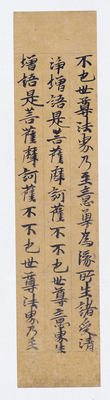 不也世尊法界乃至意觸為緣所生諸受清
淨增語是菩薩摩訶薩不不也世尊意界生
增語是菩薩摩訶薩不不也世尊法界乃至